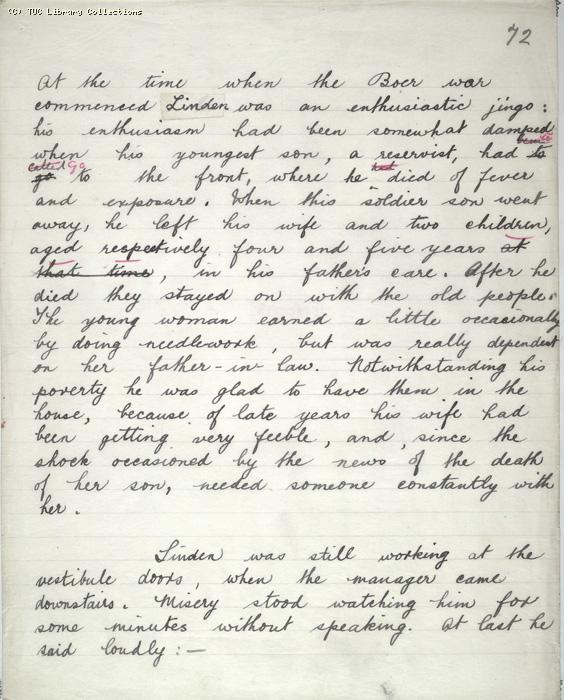 (C) TUC Library Collections
72
At the time when the Boer war
commenced Linden was an enthusiastic jingo:
his enthusiasm had been somewhat damped
when his youngest son, a reservist, had to
go to the front, where he had died of fever
and exposure. When this soldier son went
away, he left his wife and two children,
aged respectively four and five years at
that time, in his father's care. After he
died they stayed on with the old people.
The young woman earned a little occasionally
by doing needlework, but was really dependent
on her father-in-law. Notwithstanding his
poverty he was glad to have them in the
house, because of late years his wife had
been getting very feeble, and, since the
shock occasioned by the news of the death
of her son, needed someone constantly with
her.
Linden was still working at the
vestibule doors, when the manager came
downstairs. Misery stood watching him for
some minutes without speaking. At last he
said loudly:—